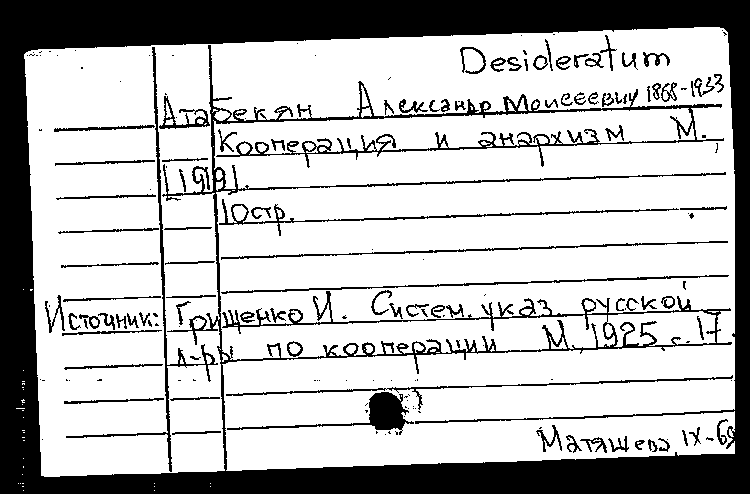 Desideratum
Атабекян Александр Моисеевич 1868-1933
Кооперация и анархизм М.,
[1919].
10стр.
Источник: Грищенко И. Систем. указ. русской
л-ры по кооперации М., 1925, с. 17.
Матяшева, IX-69